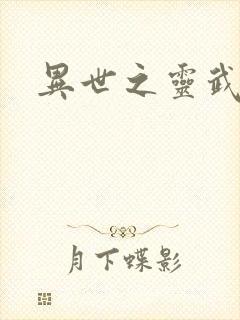 異世之靈武
月下蝶影